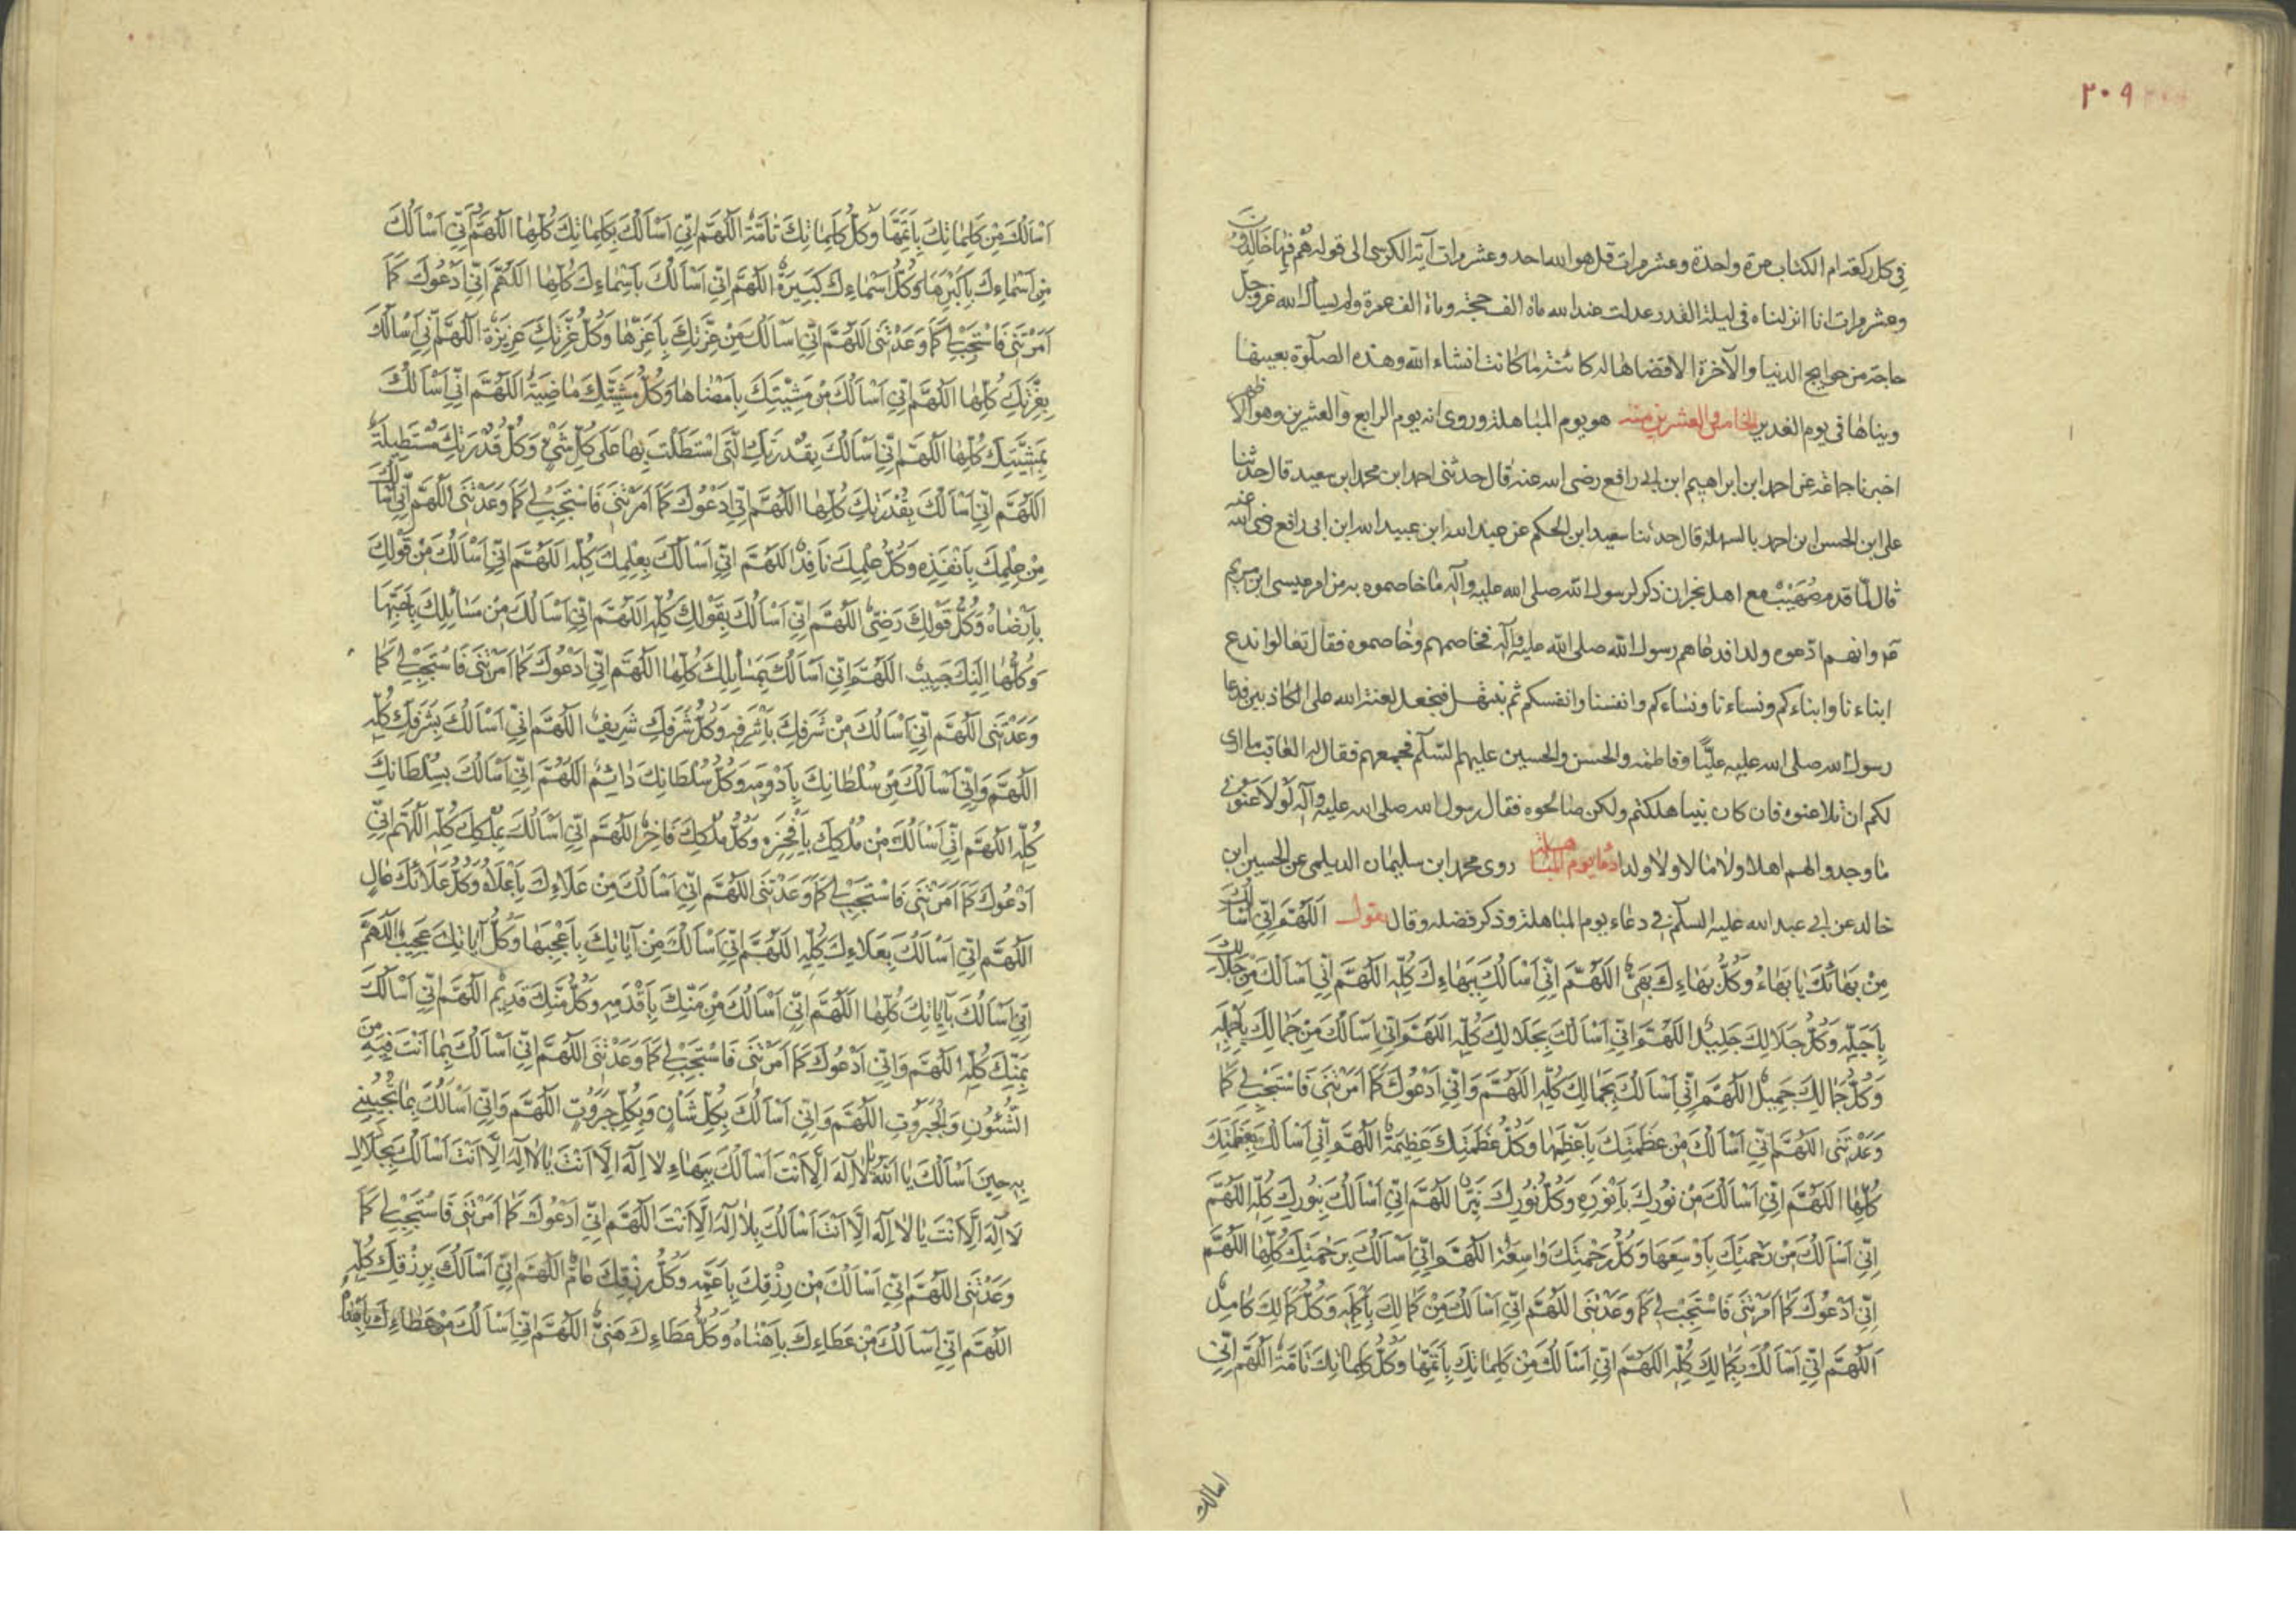 ٢٠٩
في كل ركعة ام الكتاب مرة واحدة وعشر مرات قل هو الله احد وعشر مرات آية الكرسي الى قوله هُم فيها خَالِدُونَ
وعشر مرات انا انزلناه في ليلة القدر عدلت عند الله مأة الف حجة ومأة الف عمرة ولم يسأل الله عز وجل
حاجة من حوايج الدنيا والآخرة الا قضاها له كائنة ما كانت انشاء الله وهذه الصلوة بعينها
ويناها في يوم الغدير الخامس والعشرين منه هو يوم المباهلة وروى انه يوم الرابع والعشرين وهو الاظهر
اخبرنا جماعة عن احمد ابن ابراهيم ابن ابي رافع رضى الله عنه قال حدثنى احمد ابن محمد ابن سعيد قال حدثنا
على ابن الحسن ابن احمد بالسهلة قال حدثنا سعيد ابن الحكم عن عبد الله ابن عبيد الله ابن ابى رافع رضى الله عنه
قال لما قدم صُهَيْبٌ مع اهل نجران ذكر لرسول الله صلى الله عليه وآله ما خاصموه به من امر عيسى ابن مريم
وانهم ادعوه ولدا فدعاهم رسول الله صلى الله عليه وآله فخاصمهم وخاصموه فقال تعالوا ندع
ابناءنا وابناءكم ونساءنا ونساءكم وانفسنا وانفسكم ثم نبتهل فنجعل لعنة الله على الكاذبين فدعا
رسول الله صلى الله عليه عليًّا وفاطمة والحسن والحسين عليهم السّلام فجمعهم فقال له العاقب ما ارى
لكم ان تلاعنوه فان كان نبيا هلكتم ولكن صالحوه فقال رسول الله صلى الله عليه وآله لَوْ لاعنونى
ما وجدوا لهم اهلا ولا مالا ولا ولدا دعا يوم المباهلة روى محمد ابن سليمان الديلمى عن الحسين ابن
خالد عن ابي عبد الله عليه السلام في دعاء يوم المباهلة وذكر فضله وقال يقول اَللّهُمَّ اِنّي اَسْاَلُكَ
مِنْ بَهَائِكَ بِاَبهَاهُ وَكُلُّ بَهَاءِكَ بَهِىٌّ اَللّهُمَّ اِنّي اَسْاَلُكَ بِبَهَاءِكَ كُلِّهِ اَللّهُمَّ اِنّي اَسْاَلُكَ مِنْ جَلَالِكَ
بِاَجَلِّهِ وَكُلُّ جَلَالِكَ جَلِيلٌ اَللّهُمَّ وَاِنّي اَسْاَلُكَ بِجَلَالِكَ كُلِّهِ اَللّهُمَّ وَاِنّي اَسْاَلُكَ مِنْ جَمَالِكَ بِاَجْمَلِهِ
وَكُلُّ جَمَالِكَ جَمِيلٌ اَللّهُمَّ اِنّي اَسْاَلُكَ بِجَمَالِكَ كُلِّهِ اَللّهُمَّ وَاِنّي اَدْعُوكَ كَمَا اَمَرْتَنَى فَاسْتَجِبْ لِي كَمَا
وَعَدْتَنَى اَللّهُمَّ اِنّي اَسْاَلُكَ مِنْ عَظَمَتِكَ بِاَعْظَمِهَا وَكُلُّ عَظَمَتِكَ عَظِيمَةٌ اَللّهُمَّ اِنّي اَسْاَلُكَ بِعَظَمَتِكَ
كُلِّهَا اَللّهُمَّ اِنّي اَسْاَلُكَ مِنْ نُورِكَ بِاَنْوَرِهِ وَكُلُّ نُورِكَ نَيِّرٌ اَللّهُمَّ اِنّي اَسْاَلُكَ بِنُورِكَ كُلِّهِ اَللّهُمَّ
اِنّي اَسْاَلُكَ مِنْ رَحْمَتِكَ بِاَوْسَعِهَا وَكُلُّ رَحْمَتِكَ وَاسِعَةٌ اَللّهُمَّ وَاِنّي اَسْاَلُكَ بِرَحْمَتِكَ كُلِّهَا اَللّهُمَّ
اِنّي اَدْعُوكَ كَمَا اَمَرْتَنَى فَاسْتَجِبْ لِي كَمَا وَعَدْتَنَى اَللّهُمَّ اِنّي اَسْاَلُكَ مِنْ كَمَالِكَ بِاَكْمَلِهِ وَكُلُّ كَمَالِكَ كَامِلٌ
اَللّهُمَّ اِنّي اَسْاَلُكَ بِكَمَالِكَ كُلِّهِ اَللّهُمَّ اِنّي اَسْاَلُكَ مِنْ كَلِمَاتِكَ بِاَتَمِّهَا وَكُلُّ كَلِمَاتِكَ تَامَّةٌ اَللّهُمَّ اِنّي
اسالك
اَسْاَلُكَ مِنْ كَلِمَاتِكَ بِاَتَمِّهَا وَكُلُّ كَلِمَاتِكَ تَامَّةٌ اَللّهُمَّ اِنّي اَسْاَلُكَ بِكَلِمَاتِكَ كُلِّهَا اَللّهُمَّ اِنّي اَسْاَلُكَ
مِنْ اَسْمَاءِكَ بِاَكْبَرِهَا وَكُلُّ اَسْمَاءِكَ كَبِيرَةٌ اَللّهُمَّ اِنّي اَسْاَلُكَ بِاَسْمَاءِكَ كُلِّهَا اَللّهُمَّ اِنّي اَدْعُوكَ كَمَا
اَمَرْتَنَى فَاسْتَجِبْ لِي كَمَا وَعَدْتَنَى اَللّهُمَّ اِنّي اَسْاَلُكَ مِنْ عِزَّتِكَ بِاَعَزِّهَا وَكُلُّ عِزَّتِكَ عَزِيزَةٌ اَللّهُمَّ اِنّي اَسْاَلُكَ
بِعِزَّتِكَ كُلِّهَا اَللّهُمَّ اِنّي اَسْاَلُكَ مِنْ مَشِيَّتِكَ بِاَمْضَاهَا وَكُلُّ مَشِيَّتِكَ مَاضِيَةٌ اَللّهُمَّ اِنّي اَسْاَلُكَ
بِمَشِيَّتِكَ كُلِّهَا اَللّهُمَّ اِنّي اَسْاَلُكَ بِقُدْرَتِكَ الَّتِى اسْتَطَلْتَ بِهَا عَلَى كُلِّ شَىْءٍ وَكُلُّ قُدْرَتِكَ مُسْتَطِيلَةٌ
اَللّهُمَّ اِنّي اَسْاَلُكَ بِقُدْرَتِكَ كُلِّهَا اَللّهُمَّ اِنّي اَدْعُوكَ كَمَا اَمَرْتَنَى فَاسْتَجِبْ لِي كَمَا وَعَدْتَنَى اَللّهُمَّ اِنّي اَسْاَلُكَ
مِنْ عِلْمِكَ بِاَنْفَذِهِ وَكُلُّ عِلْمِكَ نَافِذٌ اَللّهُمَّ اِنّي اَسْاَلُكَ بِعِلْمِكَ كُلِّهِ اَللّهُمَّ اِنّي اَسْاَلُكَ مِنْ قَوْلِكَ
بِاَرْضَاهُ وَكُلُّ قَوْلِكَ رَضِىٌّ اَللّهُمَّ اِنّي اَسْاَلُكَ بِقَوْلِكَ كُلِّهِ اَللّهُمَّ اِنّي اَسْاَلُكَ مِنْ مَسَائِلِكَ بِاَحَبِّهَا
وَكُلُّهَا اِلَيْكَ حَبِيبٌ اَللّهُمَّ اِنّي اَسْاَلُكَ بِمَسَائِلِكَ كُلِّهَا اَللّهُمَّ اِنّي اَدْعُوكَ كَمَا اَمَرْتَنَى فَاسْتَجِبْ لِي كَمَا
وَعَدْتَنَى اَللّهُمَّ اِنّي اَسْاَلُكَ مِنْ شَرَفِكَ بِاَشْرَفِهِ وَكُلُّ شَرَفِكَ شَرِيفٌ اَللّهُمَّ اِنّي اَسْاَلُكَ بِشَرَفِكَ كُلِّهِ
اَللّهُمَّ وَاِنّي اَسْاَلُكَ مِنْ سُلْطَانِكَ بِاَدْوَمِهِ وَكُلُّ سُلْطَانِكَ دَائِمٌ اَللّهُمَّ اِنّي اَسْاَلُكَ بِسُلْطَانِكَ
كُلِّهِ اَللّهُمَّ اِنّي اَسْاَلُكَ مِنْ مُلْكِكَ بِاَفْخَرِهِ وَكُلُّ مُلْكِكَ فَاخِرٌ اَللّهُمَّ اِنّي اَسْاَلُكَ بِمُلْكِكَ كُلِّهِ اَللّهُمَّ اِنّي
اَدْعُوكَ كَمَا اَمَرْتَنَى فَاسْتَجِبْ لِي كَمَا وَعَدْتَنَى اَللّهُمَّ اِنّي اَسْاَلُكَ مِنْ عَلَاءِكَ بِاَعْلَاهُ وَكُلُّ عَلَائِكَ عَالٍ
اَللّهُمَّ اِنّي اَسْاَلُكَ بِعَلَاءِكَ كُلِّهِ اَللّهُمَّ اِنّي اَسْاَلُكَ مِنْ آيَاتِكَ بِاَعْجَبِهَا وَكُلُّ آيَاتِكَ عَجِيبٌ اَللّهُمَّ
اِنّي اَسْاَلُكَ بِآيَاتِكَ كُلِّهَا اَللّهُمَّ اِنّي اَسْاَلُكَ مِنْ مَنِّكَ بِاَقْدَمِهِ وَكُلُّ مَنِّكَ قَدِيمٌ اَللّهُمَّ اِنّي اَسْاَلُكَ
بِمَنِّكَ كُلِّهِ اَللّهُمَّ وَاِنّي اَدْعُوكَ كَمَا اَمَرْتَنَى فَاسْتَجِبْ لِي كَمَا وَعَدْتَنَى اَللّهُمَّ اِنّي اَسْاَلُكَ بِمَا اَنْتَ فِيهِ مِنَ
الشُّئُونِ وَالْجَبَرُوتِ اَللّهُمَّ وَاِنّي اَسْاَلُكَ بِكُلِّ شَاْنٍ وَبِكُلِّ جَبَرُوتٍ اَللّهُمَّ وَاِنّي اَسْاَلُكَ بِمَا تُجِيبُنِي
بِهِ حِينَ اَسْاَلُكَ يَا اَللهُ يَا لَا اِلَهَ اِلَّا اَنْتَ اَسْاَلُكَ بِبَهَاءِ لَا اِلَهَ اِلَّا اَنْتَ يَا لَا اِلَهَ اِلَّا اَنْتَ اَسْاَلُكَ بِجَلَالِ
لَا اِلَهَ اِلَّا اَنْتَ يَا لَا اِلَهَ اِلَّا اَنْتَ اَسْاَلُكَ بِلَا اِلَهَ اِلَّا اَنْتَ اَللّهُمَّ اِنّي اَدْعُوكَ كَمَا اَمَرْتَنَى فَاسْتَجِبْ لِي كَمَا
وَعَدْتَنَى اَللّهُمَّ اِنّي اَسْاَلُكَ مِنْ رِزْقِكَ بِاَعَمِّهِ وَكُلُّ رِزْقِكَ عَامٌّ اَللّهُمَّ اِنّي اَسْاَلُكَ بِرِزْقِكَ كُلِّهِ
اَللّهُمَّ اِنّي اَسْاَلُكَ مِنْ عَطَاءِكَ بِاَهْنَاهُ وَكُلُّ عَطَاءِكَ هَنِىٌّ اَللّهُمَّ اِنّي اَسْاَلُكَ مِنْ عَطَاءِكَ